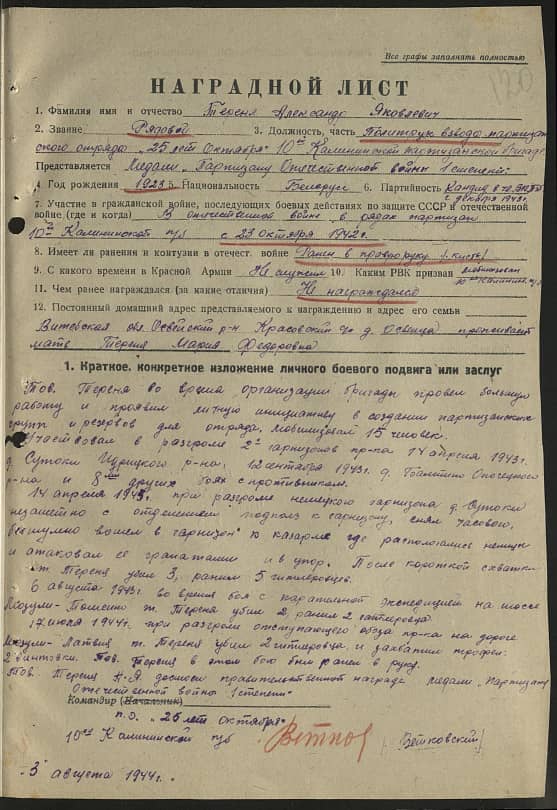 Все графы заполнять полностью
120
НАГРАДНОЙ ЛИСТ
1. Фамилия имя и отчество Тереня Александр Яковлевич
2. Звание Рядовой 3. Должность, часть Политрук взвода партизан
ского отряда "25 лет Октября" 10ой Калининской партизанской бригады
Представляется Медали "Партизану Отечественной войны 1 степени".
4. Год рождения 1923 5. Национальность Белорус 6. Партийность Кандид. в чл. ВКП/б
с декабря 1943 г.
7. Участие в гражданской войне, последующих боевых действиях по защите СССР и отечественной
войне (где и когда) В отечественной войне в рядах партизан
10ой Калининской п/б с 23 октября 1942 г.
8. Имеет ли ранения и контузии в отечест. войне Ранен в правую руку /в кисть/
9. С какого времени в Красной Армии Не служил 10. Каким РВК призван мобилизован
10ой Калинин. п/б
11. Чем ранее награждался (за какие отличия) Не награждался
12. Постоянный домашний адрес представляемого к награждению и адрес его семьи
Витебская обл. Освейский р-н Красовский д. Освица проживает
мать Тереня Мария Федоровна
1. Краткое, конкретное изложение личного боевого подвига или заслуг
Тов. Тереня во время организации бригады провел большую
работу и проявил личную инициативу в создании партизанских
групп и резервов для отряда, мобилизовал 15 человек.
Участвовал в разгроме 2х гарнизонов пр-ка 14 апреля 1943 г.
д. Сутоки Идрицкого р-на, 12 сентября 1943 г. д. Опочецкого
р-на и 8 других боях с противником.
14 апреля 1943 г. при разгроме немецкого гарнизона д. Сутоки
незаметно с отделением подполз к гарнизону, снял часового,
бесшумно вошел в гарнизон к казарме где располагались немцы
и атаковал ее гранатами и в упор. После короткой схватки
т. Тереня убил 3, ранил 5 гитлеровцев.
6 августа 1943 г. во время боя с карательной экспедицией на шоссе
Мозули-Томсино т. Тереня убил 2, ранил 2 гитлеровца.
17 июля 1944 г. при разгроме отступающего обоза пр-ка на дороге
Мозули-Латвия т. Тереня убил 2 гитлеровца и захватил трофеи:
2 винтовки. Тов. Тереня в этом бою был ранен в руку.
Тов. Тереня А.Я. достоин правительственной награды медали "Партизану
Отечественной войны 1 степени"
Командир (Начальник)
п.о. "25 лет Октября"
10ой Калининской п/б Ветков (Ветковский)
"3" августа 1944 г.